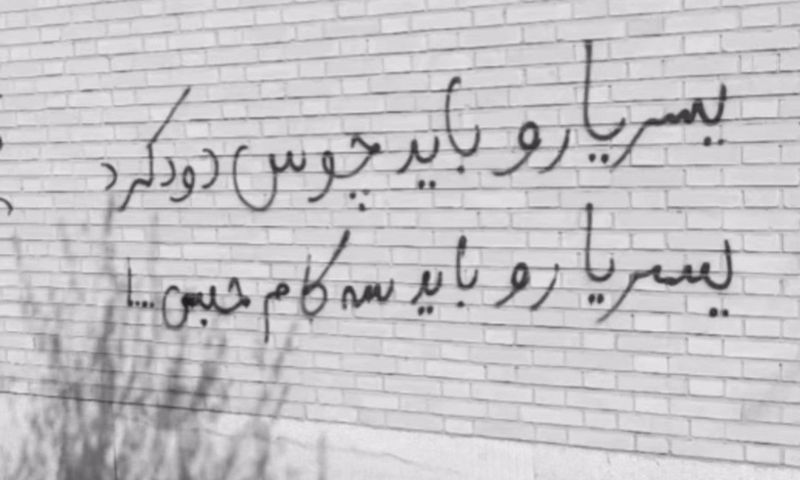 یسریا رو باید چوس دود کرد
یسریا رو باید سه کام حبس...!